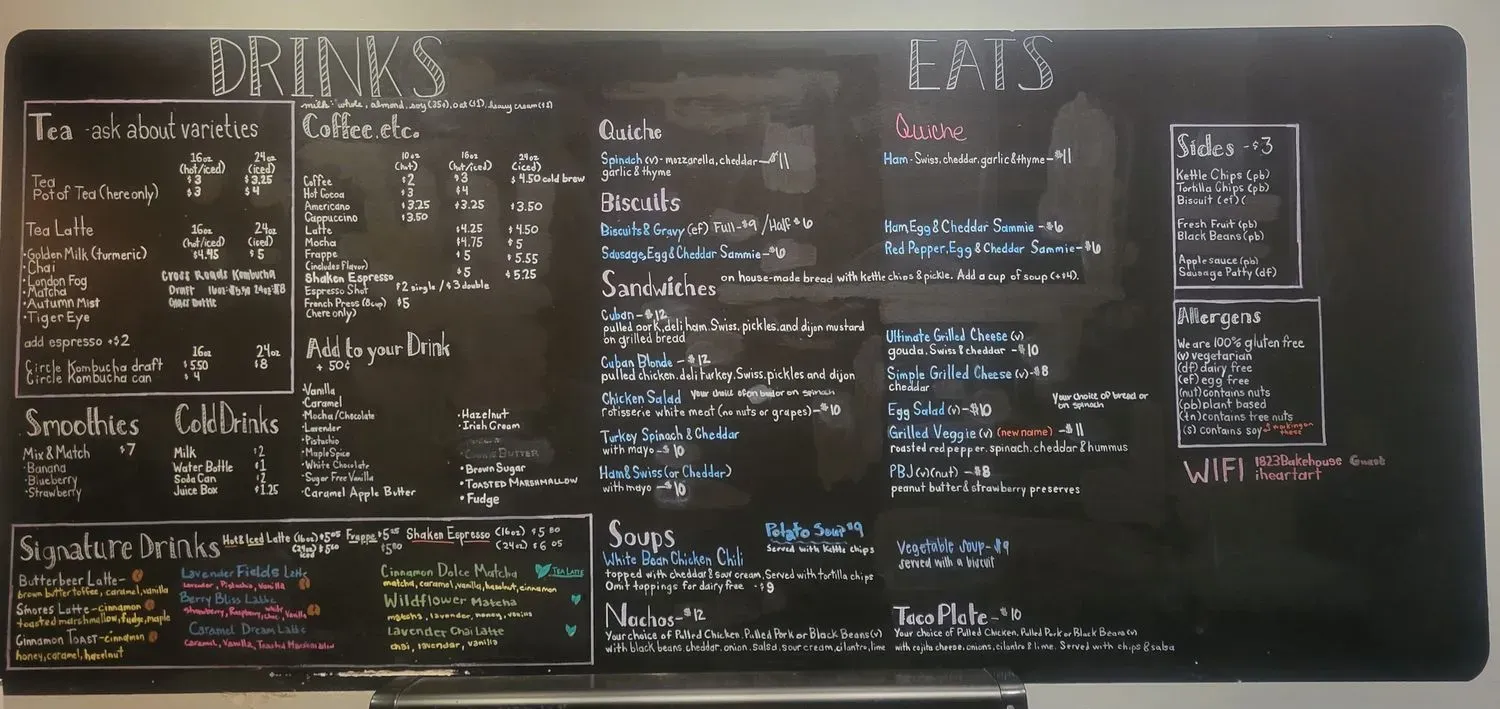 DRINKS
Tea - ask about varieties
16oz (hot/iced) 24oz (iced)
Tea $3 $3.25
Pot of Tea (here only) $3 $4
Tea Latte 16oz (hot/iced) 24oz (iced)
·Golden Milk (turmeric) $4.45 $5
·Chai
·London Fog
·Matcha
·Autumn Mist
·Tiger Eye
Cross Roads Kombucha
Draft
add espresso +$2
16oz 24oz
Circle Kombucha draft $5.50 $8
Circle Kombucha can $4
milk: whole, almond, soy (35¢), oat ($1), heavy cream ($1)
Coffee.etc.
10oz (hot) 16oz (hot/iced) 24oz (iced)
Coffee $2 $3 $4.50 cold brew
Hot Cocoa $3 $4
Americano $3.25 $3.25 $3.50
Cappuccino $3.50
Latte $4.25 $4.50
Mocha $4.75 $5
Frappe $5 $5.55
(includes Flavor)
Shaken Espresso $5 $5.25
Espresso Shot $2 single / $3 double
French Press (8cup) $5
(here only)
Add to your Drink
+ 50¢
·Vanilla
·Caramel
·Mocha/Chocolate
·Lavender
·Pistachio
·Maple Spice
·White Chocolate
·Sugar Free Vanilla
·Caramel Apple Butter
·Hazelnut
·Irish Cream
Cookie Butter
·Brown Sugar
·Toasted Marshmallow
·Fudge
Smoothies
Mix & Match $7
·Banana
·Blueberry
·Strawberry
Cold Drinks
Milk $2
Water Bottle $1
Soda Can $2
Juice Box $1.25
Signature Drinks Hot & Iced Latte (16oz) Frappe Shaken Espresso (16oz) $5
(24oz) (24oz) $6
Butterbeer Latte-
brown butter toffee, caramel, vanilla
Smores Latte - cinnamon
toasted marshmallow, fudge, maple
Cinnamon Toast - cinnamon
honey, caramel, hazelnut
Lavender Fields Latte
Lavender, Pistachio, Vanilla
Berry Bliss Latte
Strawberry, Raspberry, white choc, Vanilla
Caramel Dream Latte
Caramel, Vanilla, Toasted Marshmallow
Cinnamon Dolce Matcha Tea Latte
matcha, caramel, vanilla, hazelnut, cinnamon
Wildflower Matcha
matcha, lavender, honey, vanilla
Lavender Chai Latte
chai, lavender, vanilla
EATS
Quiche
Spinach (v) - mozzarella, cheddar - $11
garlic & thyme
Quiche
Ham - Swiss, cheddar, garlic & thyme - $11
Biscuits
Biscuits & Gravy (ef) Full - $9 / Half $6
Sausage, Egg & Cheddar Sammie - $6
Ham, Egg & Cheddar Sammie - $6
Red Pepper, Egg & Cheddar Sammie - $6
Sandwiches on house-made bread with kettle chips & pickle. Add a cup of soup (+$4).
Cuban - $12
pulled pork, deli ham, Swiss, pickles, and dijon mustard
on grilled bread
Cuban Blonde - $12
pulled chicken, deli turkey, Swiss, pickles, and dijon
Chicken Salad Your choice of on bread or on spinach
rotisserie white meat (no nuts or grapes) - $10
Turkey Spinach & Cheddar
with mayo - $10
Ham & Swiss (or Cheddar)
with mayo - $10
Ultimate Grilled Cheese (v)
gouda, Swiss & cheddar - $10
Simple Grilled Cheese (v) - $8
cheddar
Egg Salad (v) - $10 Your choice of bread or
on spinach
Grilled Veggie (v) (new name) - $11
roasted red pepper, spinach, cheddar & hummus
PBJ (v)(nut) - $8
peanut butter & strawberry preserves
Soups
Potato Soup $9
Served with Kettle chips
White Bean Chicken Chili
topped with cheddar & sour cream. Served with tortilla chips
Omit toppings for dairy free - $9
Vegetable Soup - $9
served with a biscuit
Nachos - $12
Your choice of Pulled Chicken, Pulled Pork or Black Beans (v)
with black beans, cheddar, onion, salsa, sour cream, cilantro, lime
Taco Plate - $10
Your choice of Pulled Chicken, Pulled Pork or Black Beans (v)
with cojita cheese, onions, cilantro & lime. Served with chips & salsa
Sides - $3
Kettle Chips (pb)
Tortilla Chips (pb)
Biscuit (ef) (
Fresh Fruit (pb)
Black Beans (pb)
Applesauce (pb)
Sausage Patty (df)
Allergens
We are 100% gluten free
(v) vegetarian
(df) dairy free
(ef) egg free
(nut) contains nuts
(pb) plant based
(tn) contains tree nuts
(s) contains soy
WIFI 1823Bakehouse Guest
iheartart